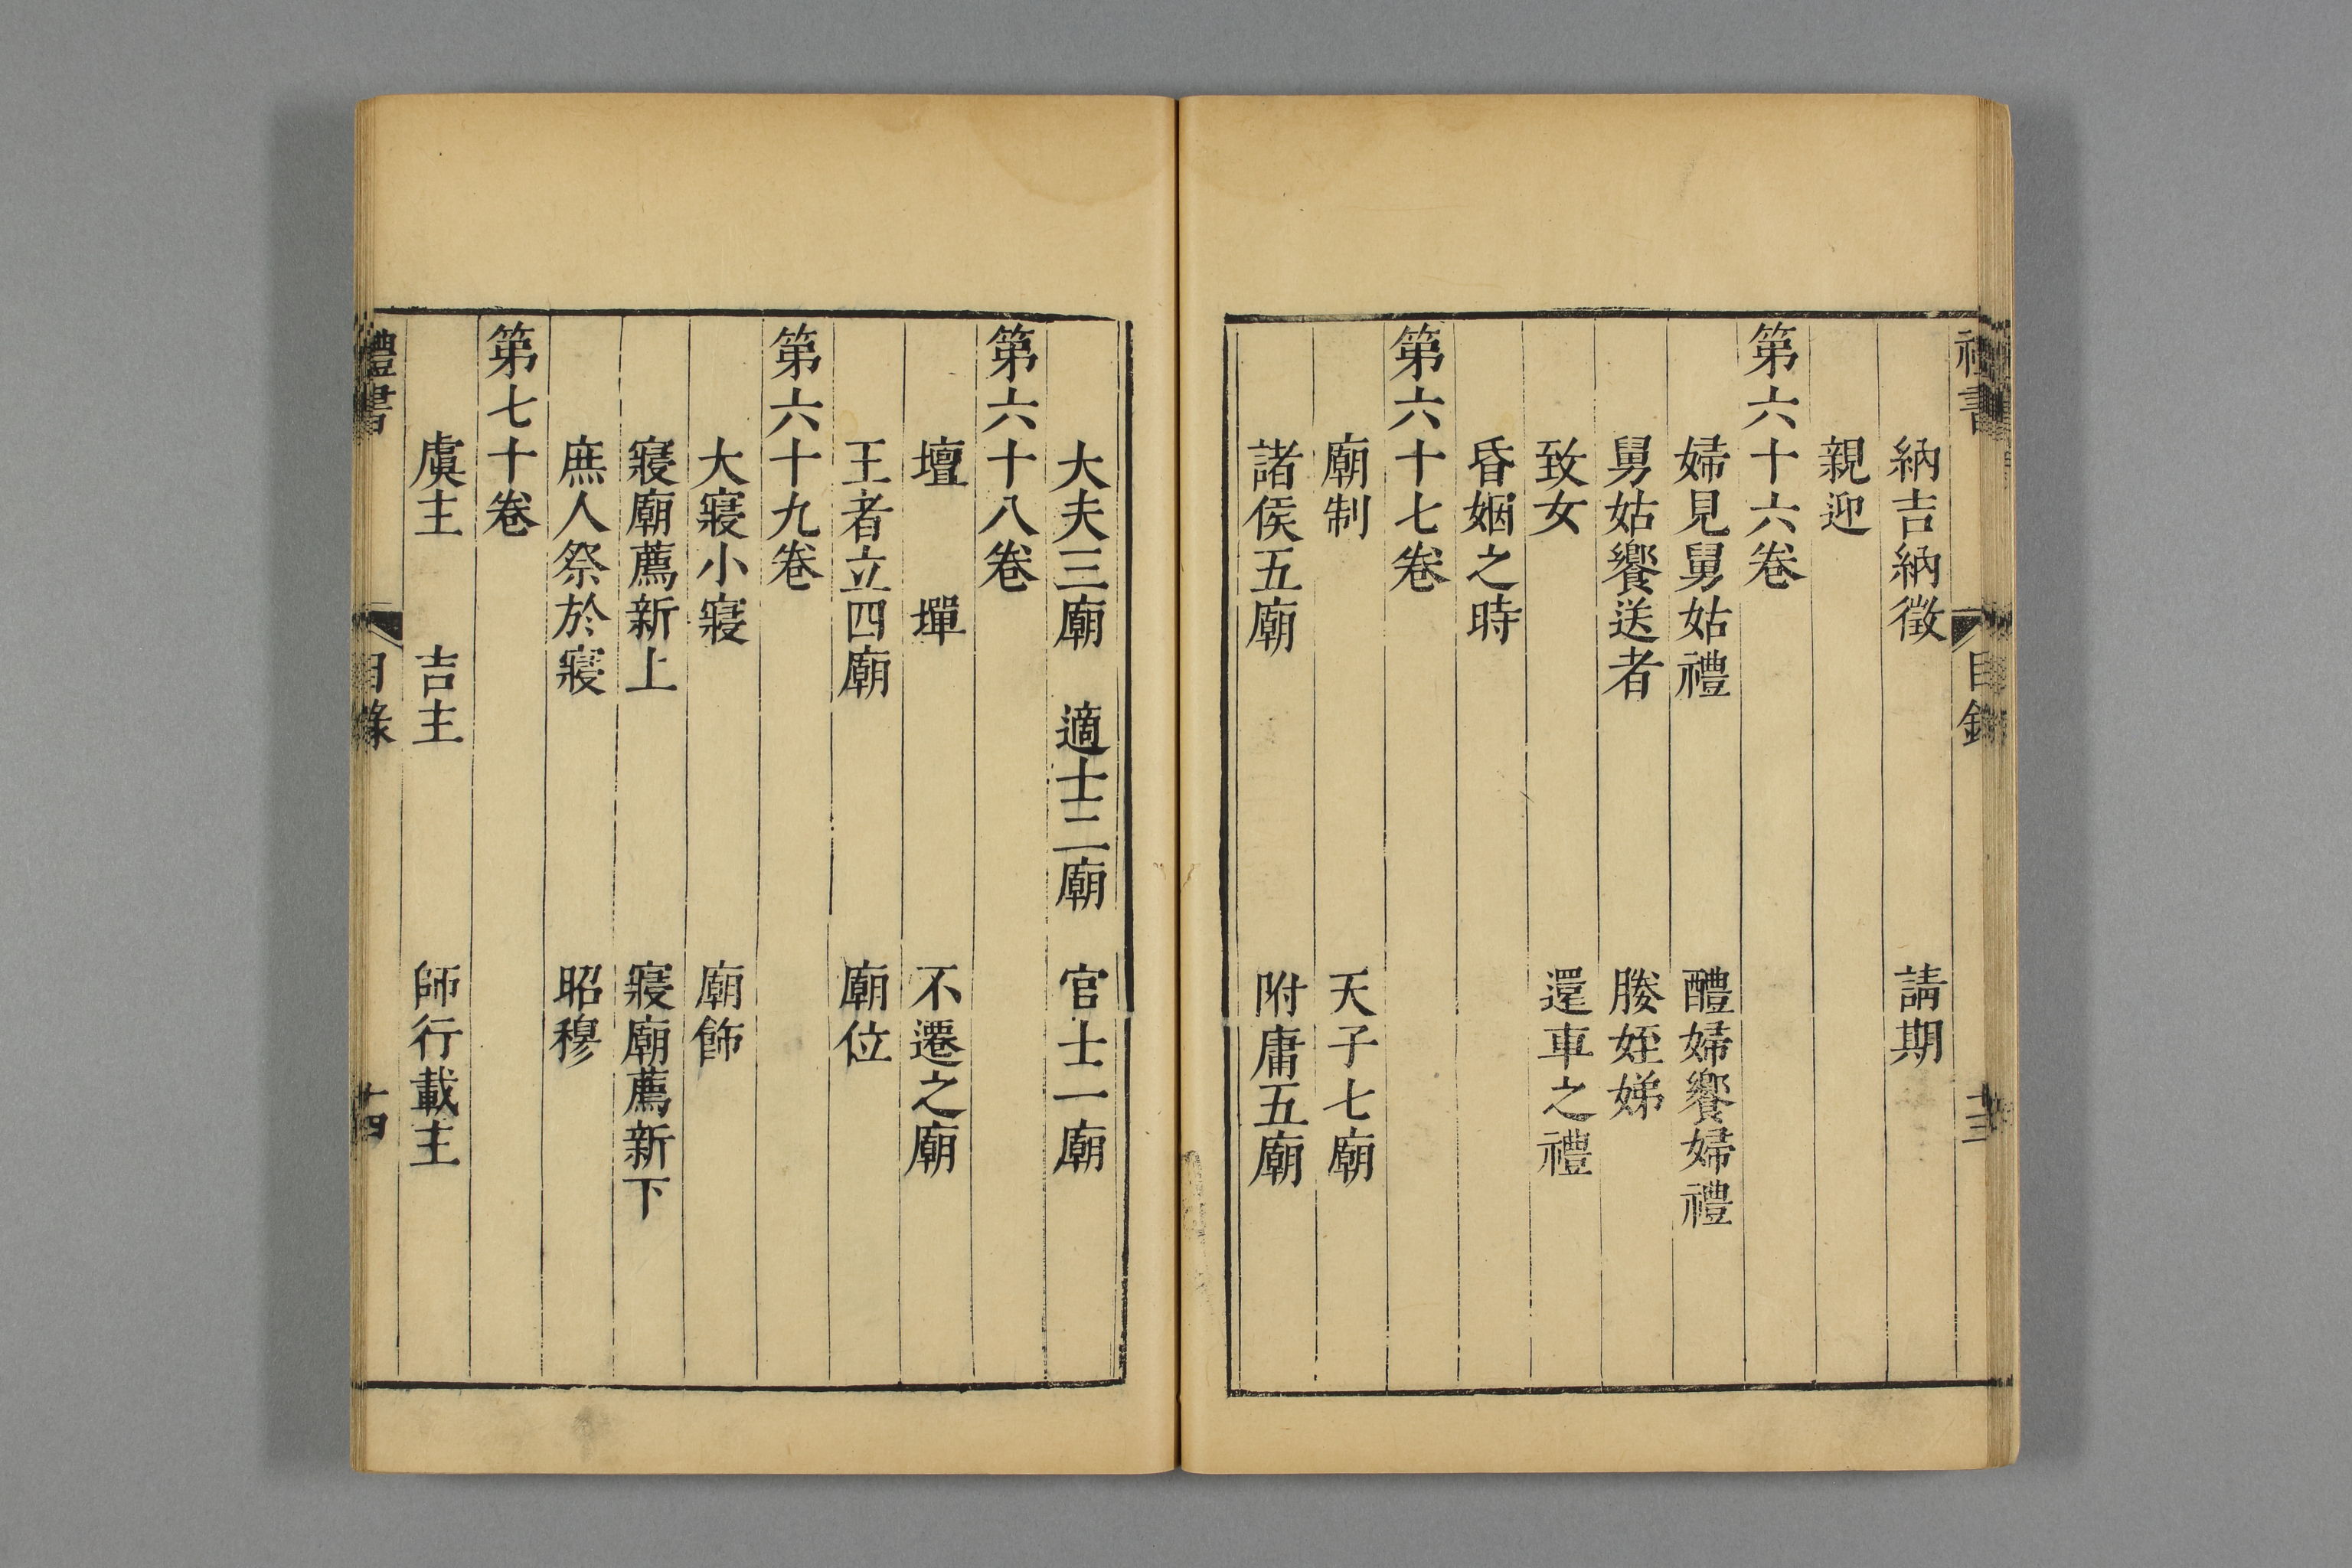 禮書 目錄 十三
納吉納徵 請期
親迎
第六十六卷
婦見舅姑禮 醴婦饗婦禮
舅姑饗送者 媵姪娣
致女 還車之禮
昏姻之時
第六十七卷
廟制 天子七廟
諸侯五廟 附庸五廟
大夫三廟 適士二廟 官士一廟
第六十八卷
壇 墠 不遷之廟
王者立四廟 廟位
第六十九卷
大寢小寢 廟飾
寢廟薦新上 寢廟薦新下
庶人祭於寢 昭穆
第七十卷
虞主 吉主 師行載主
禮書 目錄 十四